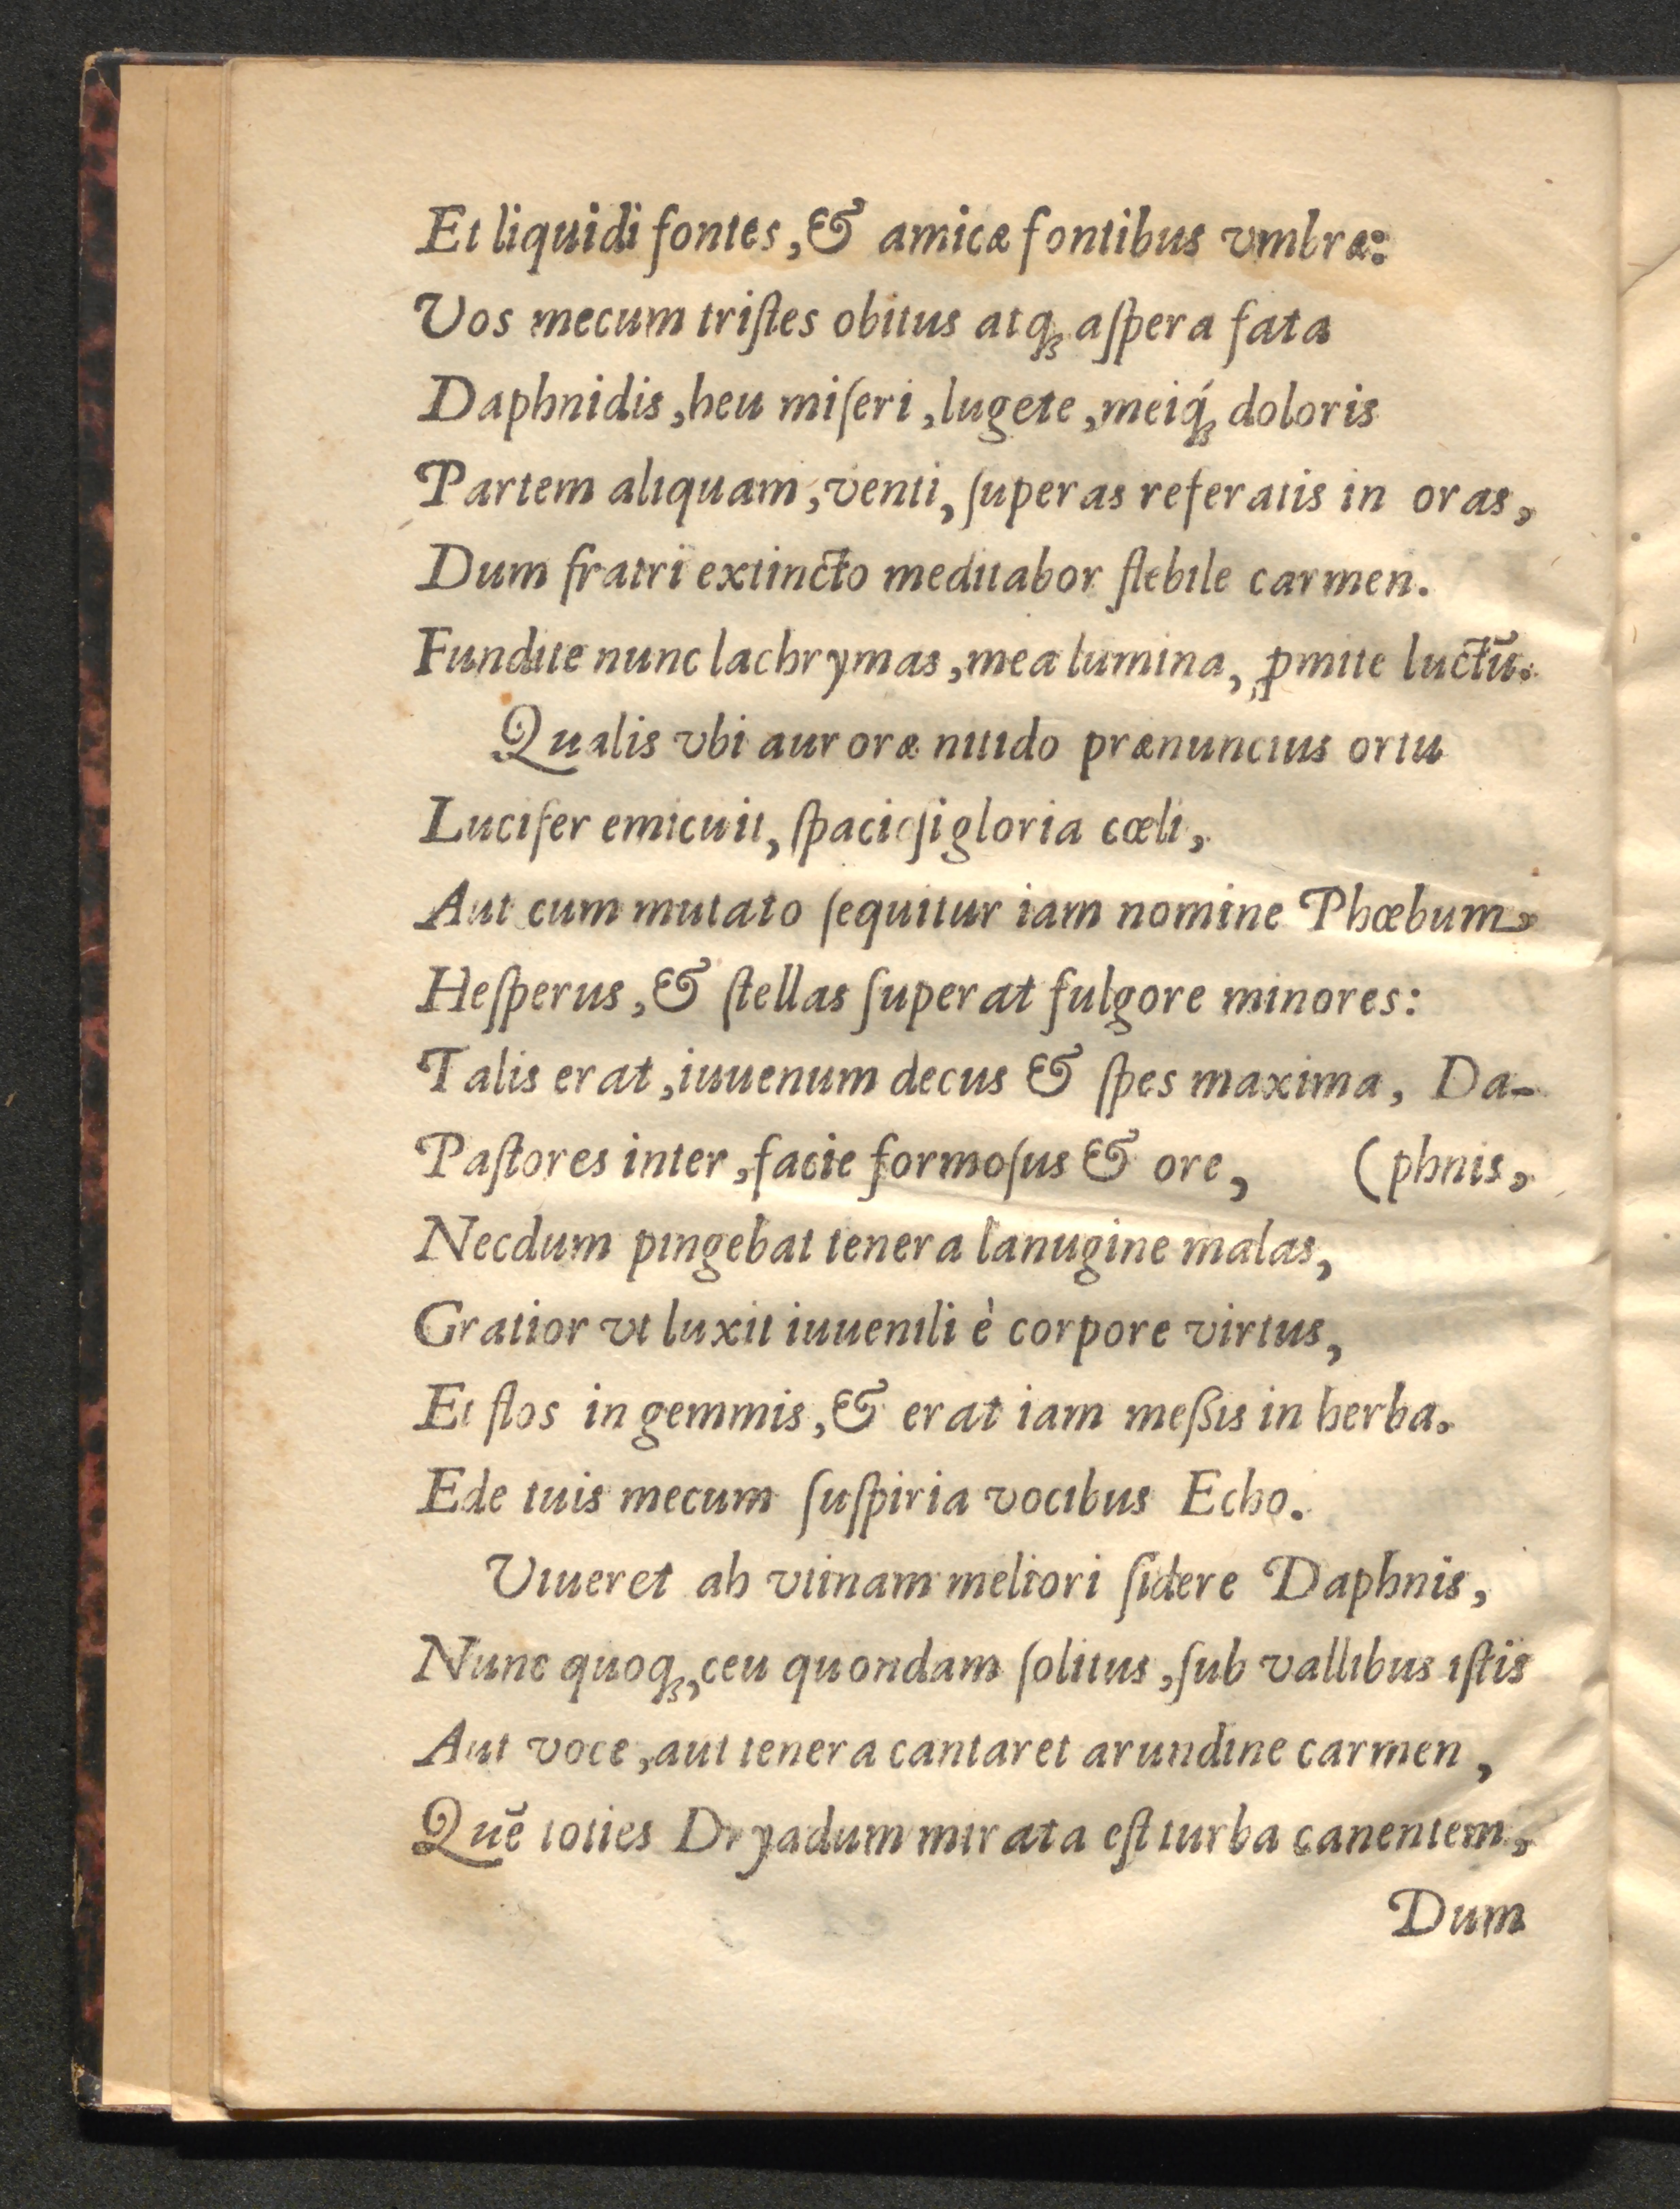 Et liquidi fontes, & amicæ fontibus vmbræ:
Vos mecum triſtes obitus atq; aſpera fata
Daphnidis, heu miſeri, lugete, meiq́; doloris
Partem aliquam, venti, ſuperas referatis in oras,
Dum fratri extincto meditabor flebile carmen.
Fundite nunc lachrymas, mea lumina, ꝓmite luctū.
Qualis vbi auroræ nitido prænuncius ortu
Lucifer emicuit, ſpacioſi gloria cœli,
Aut cum mutato ſequitur iam nomine Phœbum,
Heſperus, & ſtellas ſuperat fulgore minores:
Talis erat, iuuenum decus & ſpes maxima, Da-
Paſtores inter, facie formoſus & ore, (phnis,
Necdum pingebat tenera lanugine malas,
Gratior vt luxit iuuenili è corpore virtus,
Et flos in gemmis, & erat iam meſsis in herba.
Ede tuis mecum ſuſpiria vocibus Echo.
Viueret ah vtinam meliori ſidere Daphnis,
Nunc quoq;, ceu quondam ſolitus, ſub vallibus iſtis
Aut voce, aut tenera cantaret arundine carmen,
Quē toties Dryadum mirata eſt turba canentem,
Dum